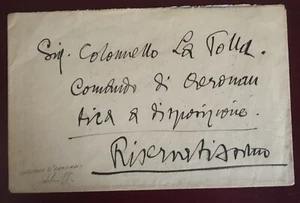 Sig. Colonnello La Folla.
Comando di Aeronau
tica a disposizione.
Riservatissimo